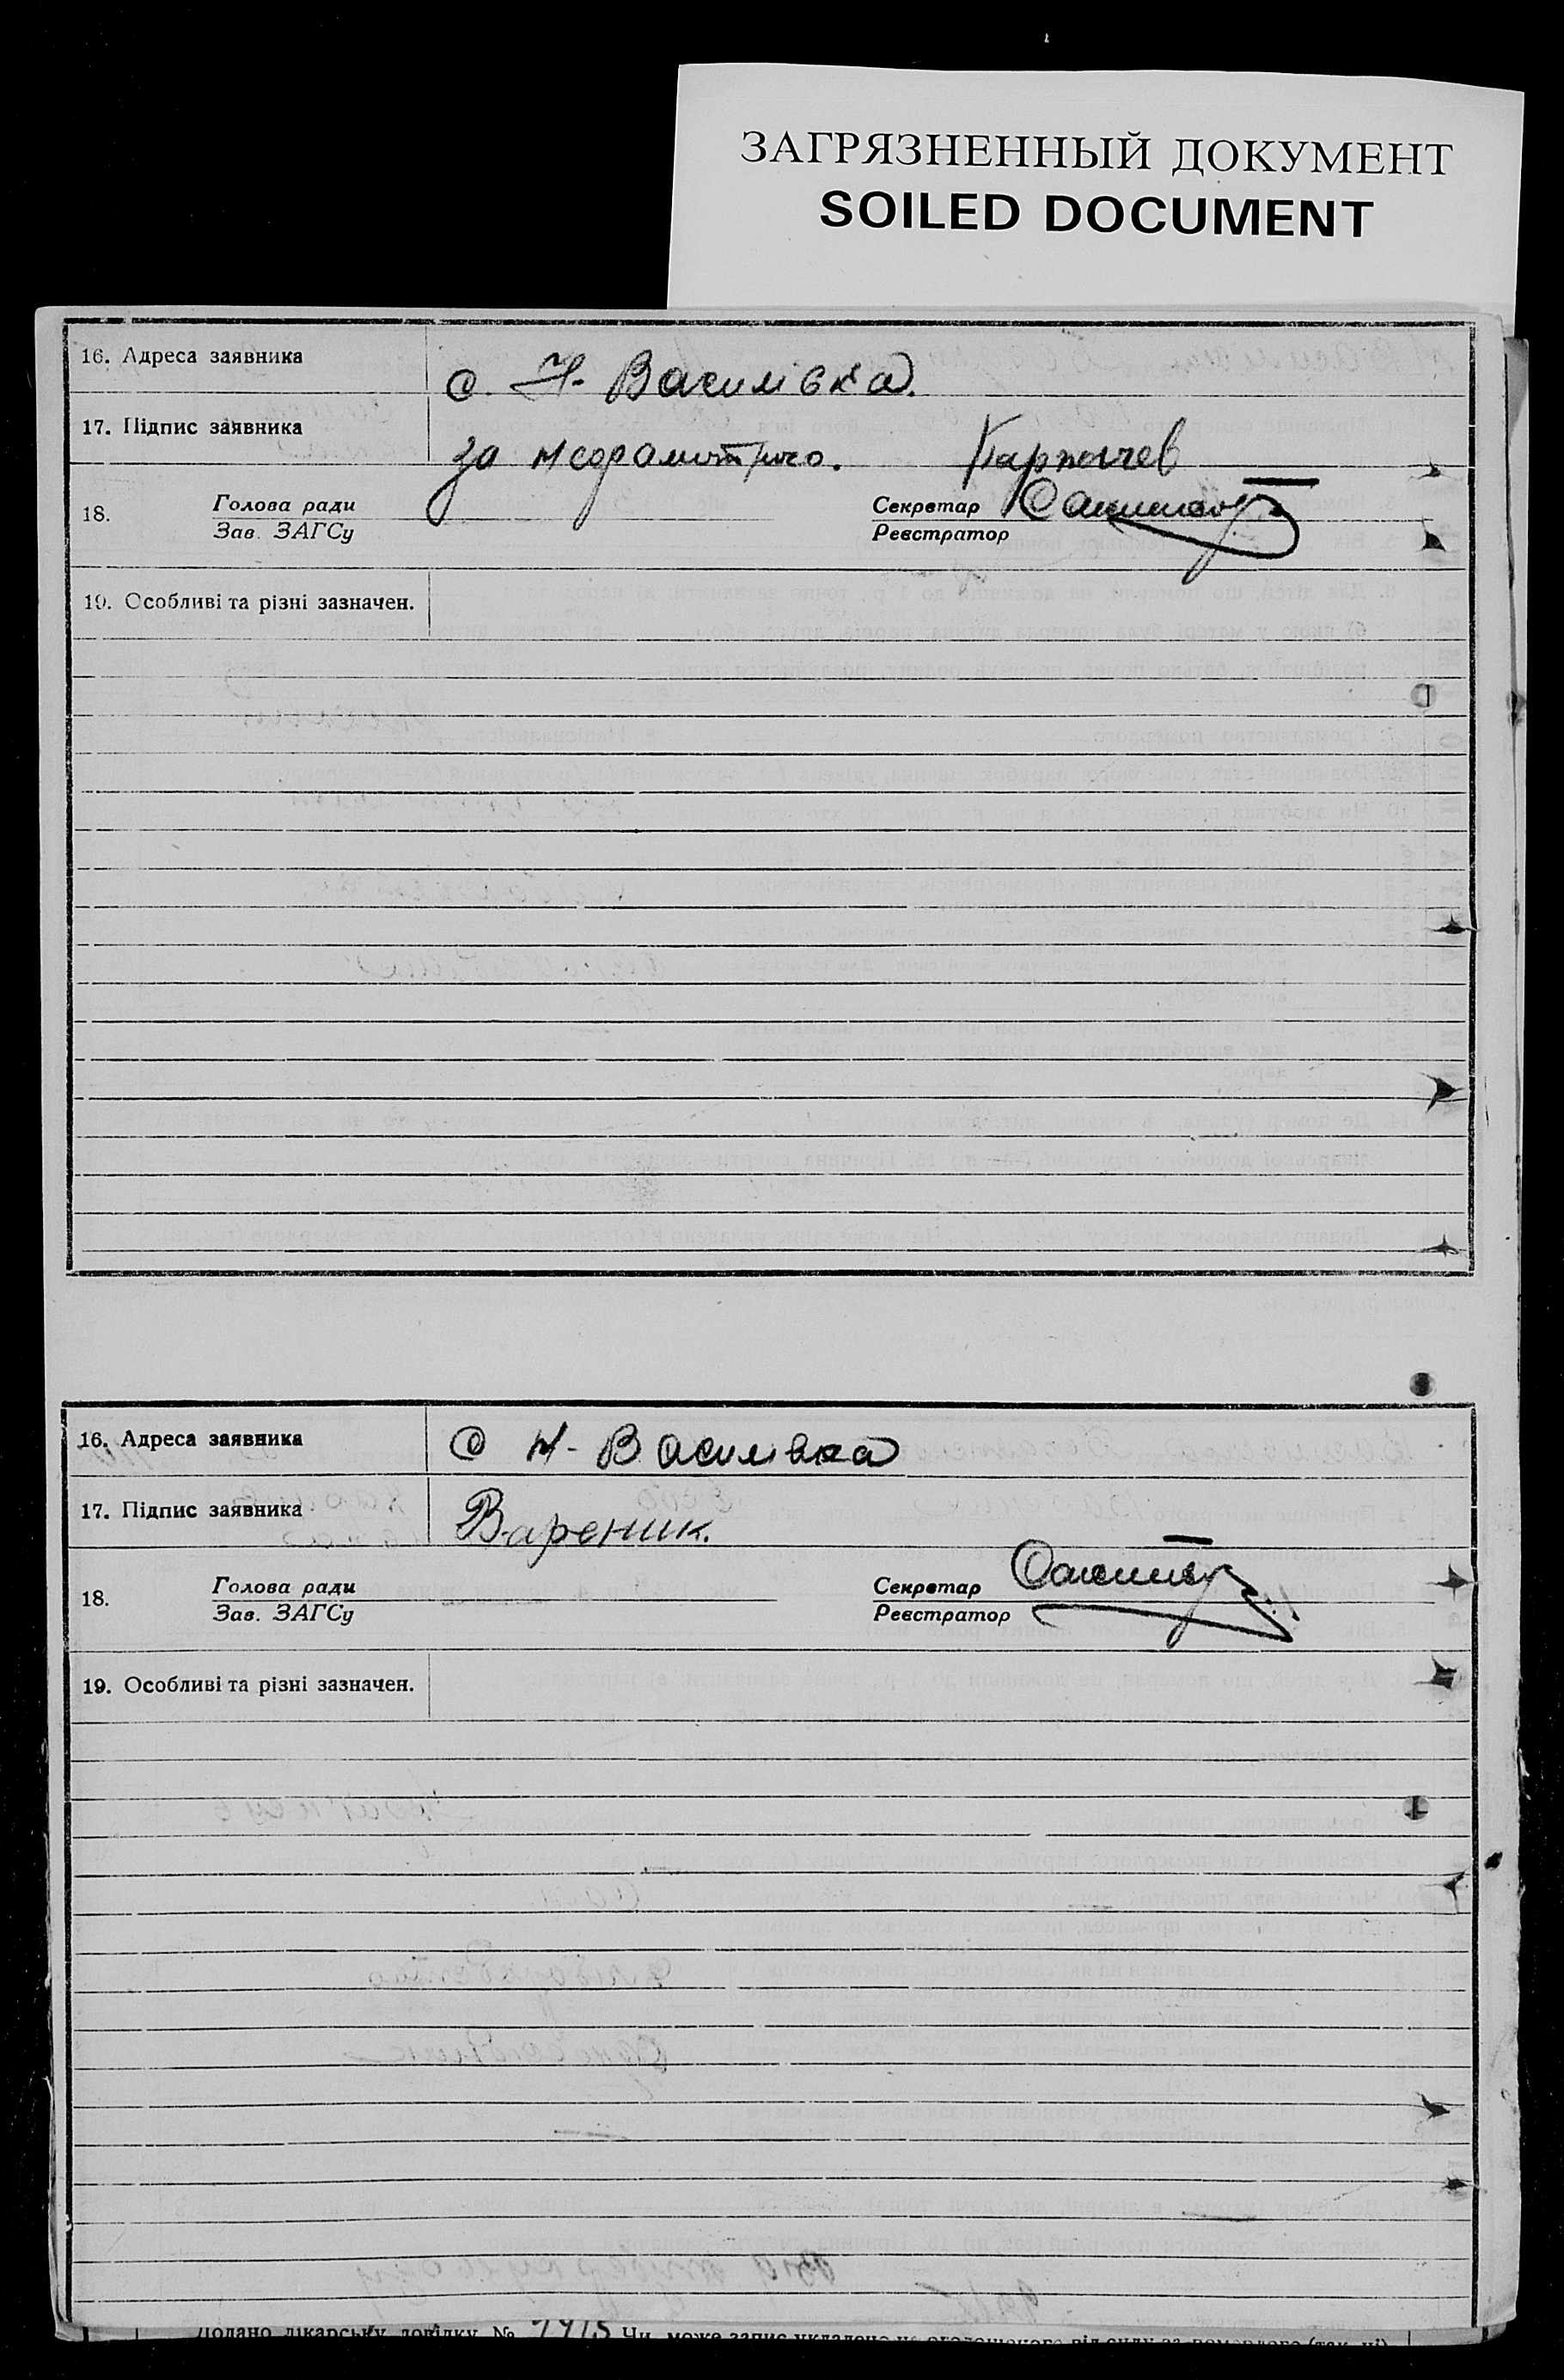 ЗАГРЯЗНЕННЫЙ ДОКУМЕНТ
SOILED DOCUMENT
16. Адреса заявника
с. Н. Василівка.
17. Підпис заявника
за неграмотного. Карпычев
18. Голова ради
Зав. ЗАГСу
Секретар
Реєстратор
19. Особливі та різні зазначен.
16. Адреса заявника
с Н- Василівка
17. Підпис заявника
Вареник.
18. Голова ради
Зав. ЗАГСу
Секретар
Реєстратор
19. Особливі та різні зазначен.
Додано лікарську довідку №